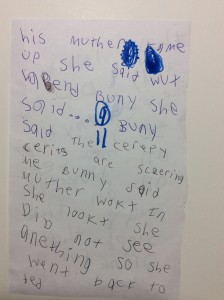 his muther came
up she said wux
hapend Buny she
said... Buny
said 11 the cereapy
cerits are scaering
me Bunny said
muther wokt In
she lookt she
Did not see
anething so she
want back to
bed